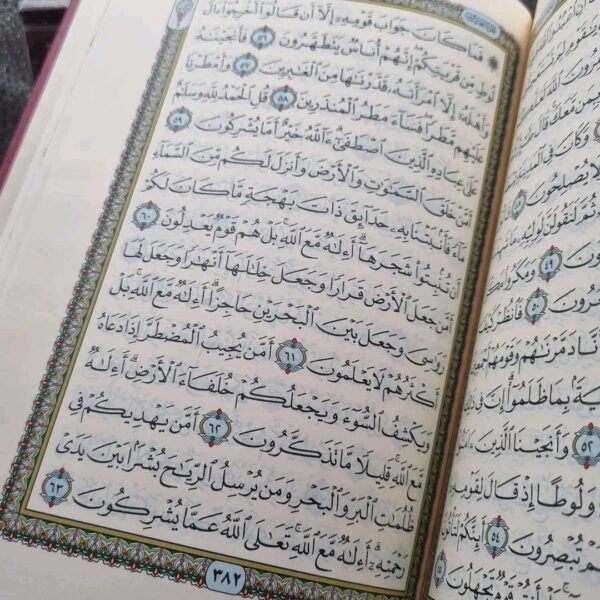 يُصْلِحُونَ
٤٨
لَنَقُولَنَّ لِوَلِيِّهِۦ
٤٩ وَمَكَرُوا۟
٥٠ فَٱنظُرْ كَيْفَ
دَمَّرْنَٰهُمْ وَقَوْمَهُمْ
بِمَا ظَلَمُوٓا۟ إِنَّ فِى
٥٢ وَأَنجَيْنَا ٱلَّذِينَ
وَلُوطًا إِذْ قَالَ لِقَوْمِهِۦٓ
تُبْصِرُونَ ٥٤ أَئِنَّكُمْ لَتَأْتُونَ
أَنتُمْ قَوْمٌ تَجْهَلُونَ
۞ فَمَا كَانَ جَوَابَ قَوْمِهِۦٓ إِلَّآ أَن قَالُوٓا۟ أَخْرِجُوٓا۟ ءَالَ
لُوطٍ مِّن قَرْيَتِكُمْ إِنَّهُمْ أُنَاسٌ يَتَطَهَّرُونَ ٥٦ فَأَنجَيْنَٰهُ
وَأَهْلَهُۥٓ إِلَّا ٱمْرَأَتَهُۥ قَدَّرْنَٰهَا مِنَ ٱلْغَٰبِرِينَ ٥٧ وَأَمْطَرْنَا
عَلَيْهِم مَّطَرًا فَسَآءَ مَطَرُ ٱلْمُنذَرِينَ ٥٨ قُلِ ٱلْحَمْدُ لِلَّهِ وَسَلَٰمٌ
عَلَىٰ عِبَادِهِ ٱلَّذِينَ ٱصْطَفَىٰٓ ءَآللَّهُ خَيْرٌ أَمَّا يُشْرِكُونَ ٥٩
أَمَّنْ خَلَقَ ٱلسَّمَٰوَٰتِ وَٱلْأَرْضَ وَأَنزَلَ لَكُم مِّنَ ٱلسَّمَآءِ
مَآءً فَأَنۢبَتْنَا بِهِۦ حَدَآئِقَ ذَاتَ بَهْجَةٍ مَّا كَانَ لَكُمْ
أَن تُنۢبِتُوا۟ شَجَرَهَآ أَءِلَٰهٌ مَّعَ ٱللَّهِ بَلْ هُمْ قَوْمٌ يَعْدِلُونَ ٦٠
أَمَّن جَعَلَ ٱلْأَرْضَ قَرَارًا وَجَعَلَ خِلَٰلَهَآ أَنْهَٰرًا وَجَعَلَ لَهَا
رَوَٰسِىَ وَجَعَلَ بَيْنَ ٱلْبَحْرَيْنِ حَاجِزًا أَءِلَٰهٌ مَّعَ ٱللَّهِ بَلْ
أَكْثَرُهُمْ لَا يَعْلَمُونَ ٦١ أَمَّن يُجِيبُ ٱلْمُضْطَرَّ إِذَا دَعَاهُ
وَيَكْشِفُ ٱلسُّوٓءَ وَيَجْعَلُكُمْ خُلَفَآءَ ٱلْأَرْضِ أَءِلَٰهٌ
مَّعَ ٱللَّهِ قَلِيلًا مَّا تَذَكَّرُونَ ٦٢ أَمَّن يَهْدِيكُمْ فِى
ظُلُمَٰتِ ٱلْبَرِّ وَٱلْبَحْرِ وَمَن يُرْسِلُ ٱلرِّيَٰحَ بُشْرًۢا بَيْنَ يَدَىْ
رَحْمَتِهِۦٓ أَءِلَٰهٌ مَّعَ ٱللَّهِ تَعَٰلَى ٱللَّهُ عَمَّا يُشْرِكُونَ ٦٣
٣٨٢